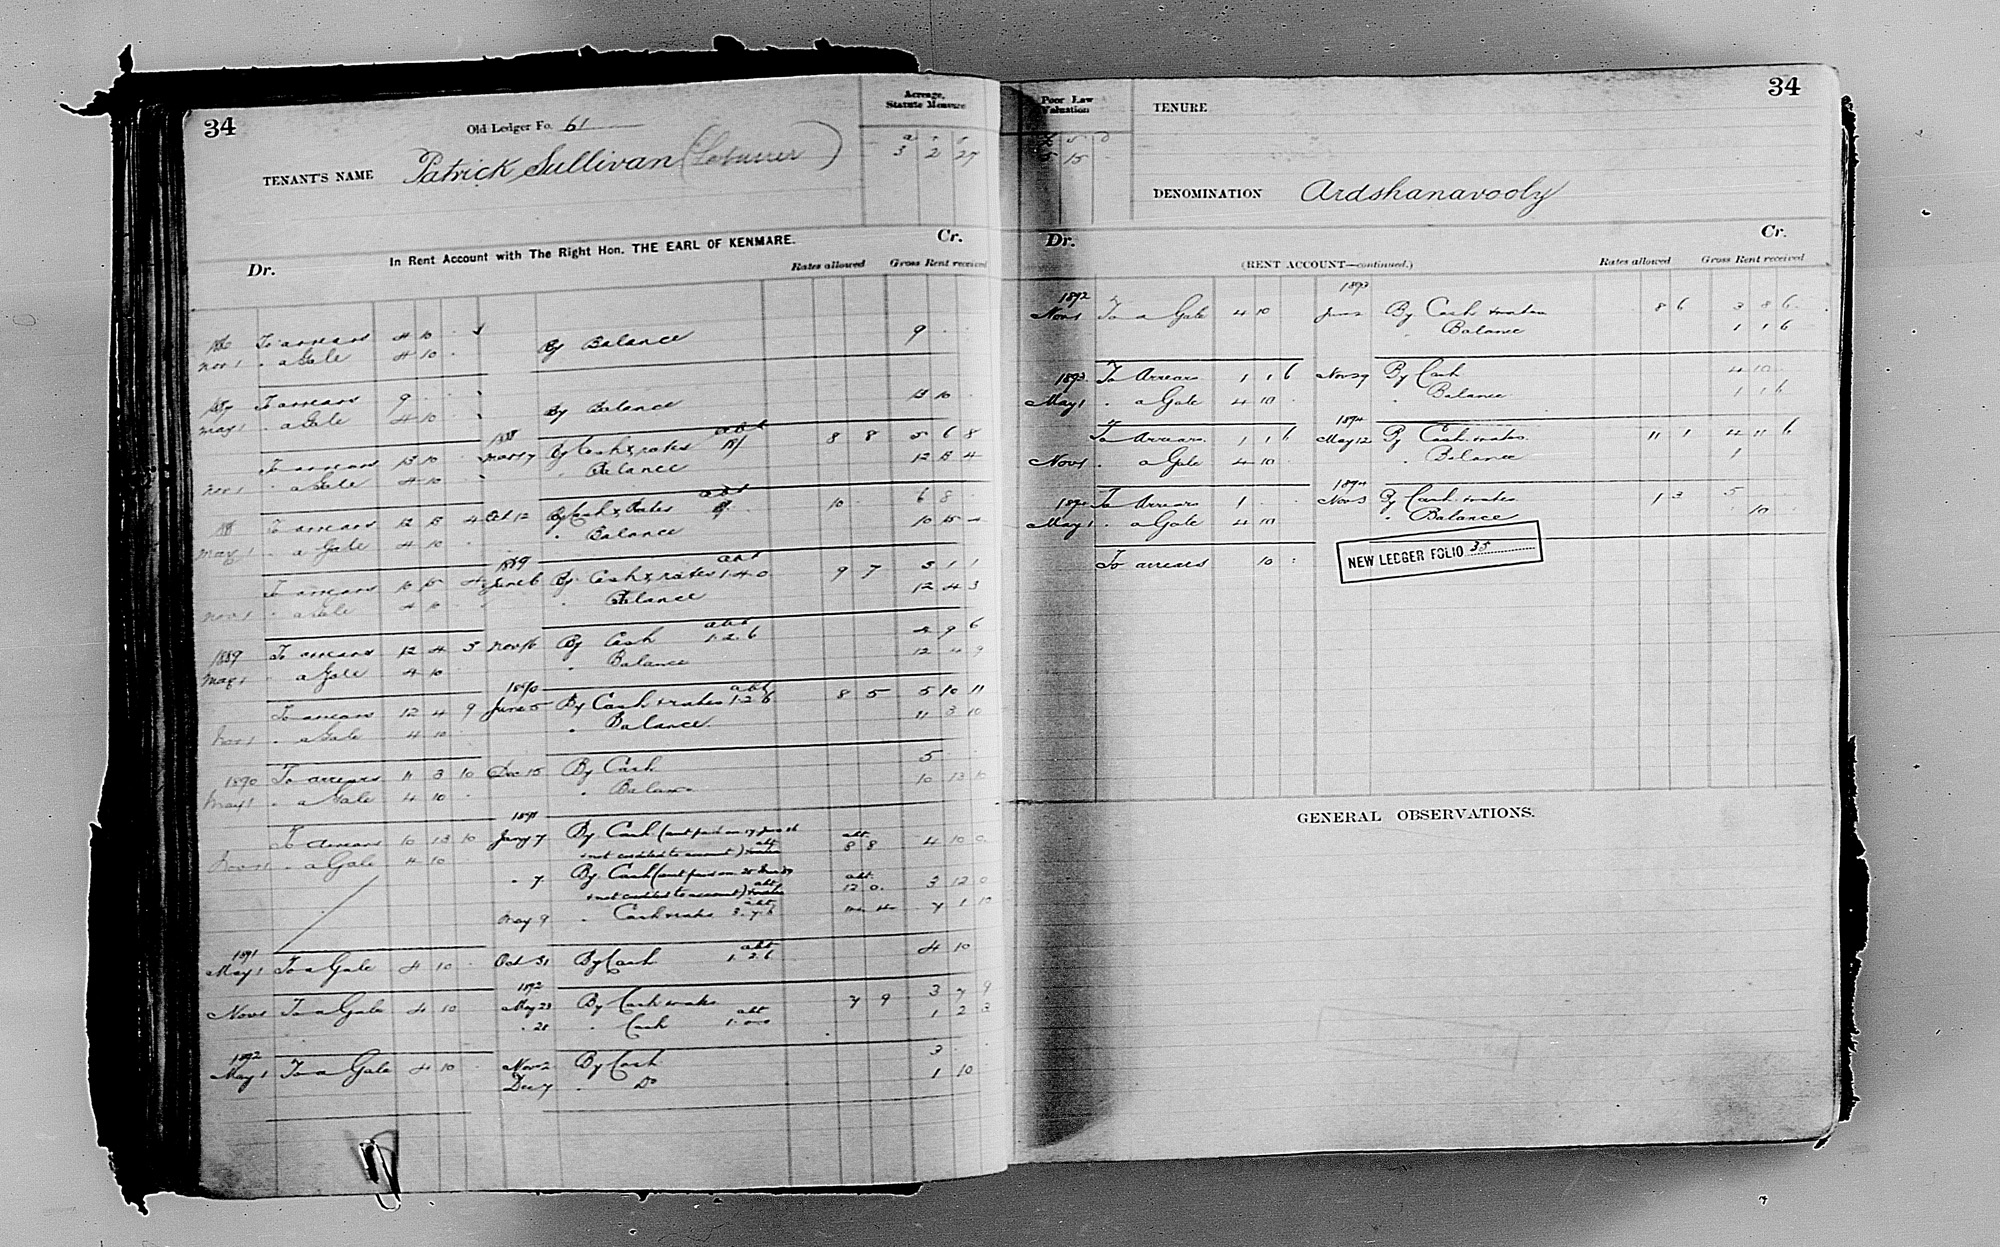 34
Old Ledger Fo. 61
Acreage, Statute Measure
a r p
3 2 27
TENANT'S NAME Patrick Sullivan (Labourer)
In Rent Account with The Right Hon. THE EARL OF KENMARE.
Dr. Cr.
Rates allowed Gross Rent received
To arrears 4 10 .
Nov 1 . a Gale 4 10 . By Balance 9 . .
To arrears 9 . .
May 1 . a Gale 4 10 . By Balance 13 10 .
1888 abt
To arrears 13 10 . By Cash & rates 8 8 5 6 8
Nov 1 . a Gale 4 10 . . Balance 12 13 4
abt
To arrears 12 13 4 Oct 12 By Cash & Rates 10 . 6 8 .
May 1 . a Gale 4 10 . . Balance 10 15 4
1889 abt
To arrears 10 15 4 June 6 By Cash & rates 1.4.0 9 7 3 1 1
Nov 1 . a Gale 4 10 . . Balance 12 4 3
1889 To arrears 12 4 3 Nov 16 By Cash abt 1.2.6 9 6
May 1 . a Gale 4 10 . Balance 12 4 9
1890 abt
To arrears 12 4 9 June 5 By Cash & rates 1.2.6 8 5 5 10 11
Nov 1 . a Gale 4 10 . Balance 11 3 10
1890 To arrears 11 3 10 Dec 15 By Cash 5 .
May 1 . a Gale 4 10 . . Balance 10 13 10
1891
To arrears 10 13 10 Jany 7 By Cash (amt paid on 17 abt 8 8 4 10 0
Nov 1 . a Gale 4 10 & not credited to account) abt
. 7 By Cash (amt paid on 25 abt 12 0 3 12 0
& not credited to account) abt
May 9 . Cash & rates abt 3.7.6 7 1 10
1891
May 1 To a Gale 4 10 . Oct 31 By Cash abt 1.2.6 4 10
1892
Nov 1 To a Gale 4 10 May 23 By Cash & rates 7 9 3 7 9
. Cash abt 1 2 3
1892
May 1 To a Gale 4 10 . Nov 2 By Cash 3 . .
Dec 7 . Do 1 10
34
Poor Law Valuation
£ s d
5 15 .
TENURE
DENOMINATION Ardshanavooly
Dr. Cr.
(RENT ACCOUNT—continued.)
Rates allowed Gross Rent received
1892 1893
Nov 1 To a Gale 4 10 June 2 By Cash & rates 8 6 3 8 6
Balance 1 1 6
1893 To Arrears 1 1 6 Nov 29 By Cash 4 10 .
May 1 . a Gale 4 10 . . Balance 1 1 6
1894
To Arrears 1 1 6 May 12 By Cash & rates 11 1 4 11 6
Nov 1 . a Gale 4 10 . . Balance 1
1894
1894 To Arrears 1 . . Nov 3 By Cash & rates 1 3 5
May 1 . a Gale 4 10 . Balance . 10
To arrears 10 :
NEW LEDGER FOLIO 35
GENERAL OBSERVATIONS.